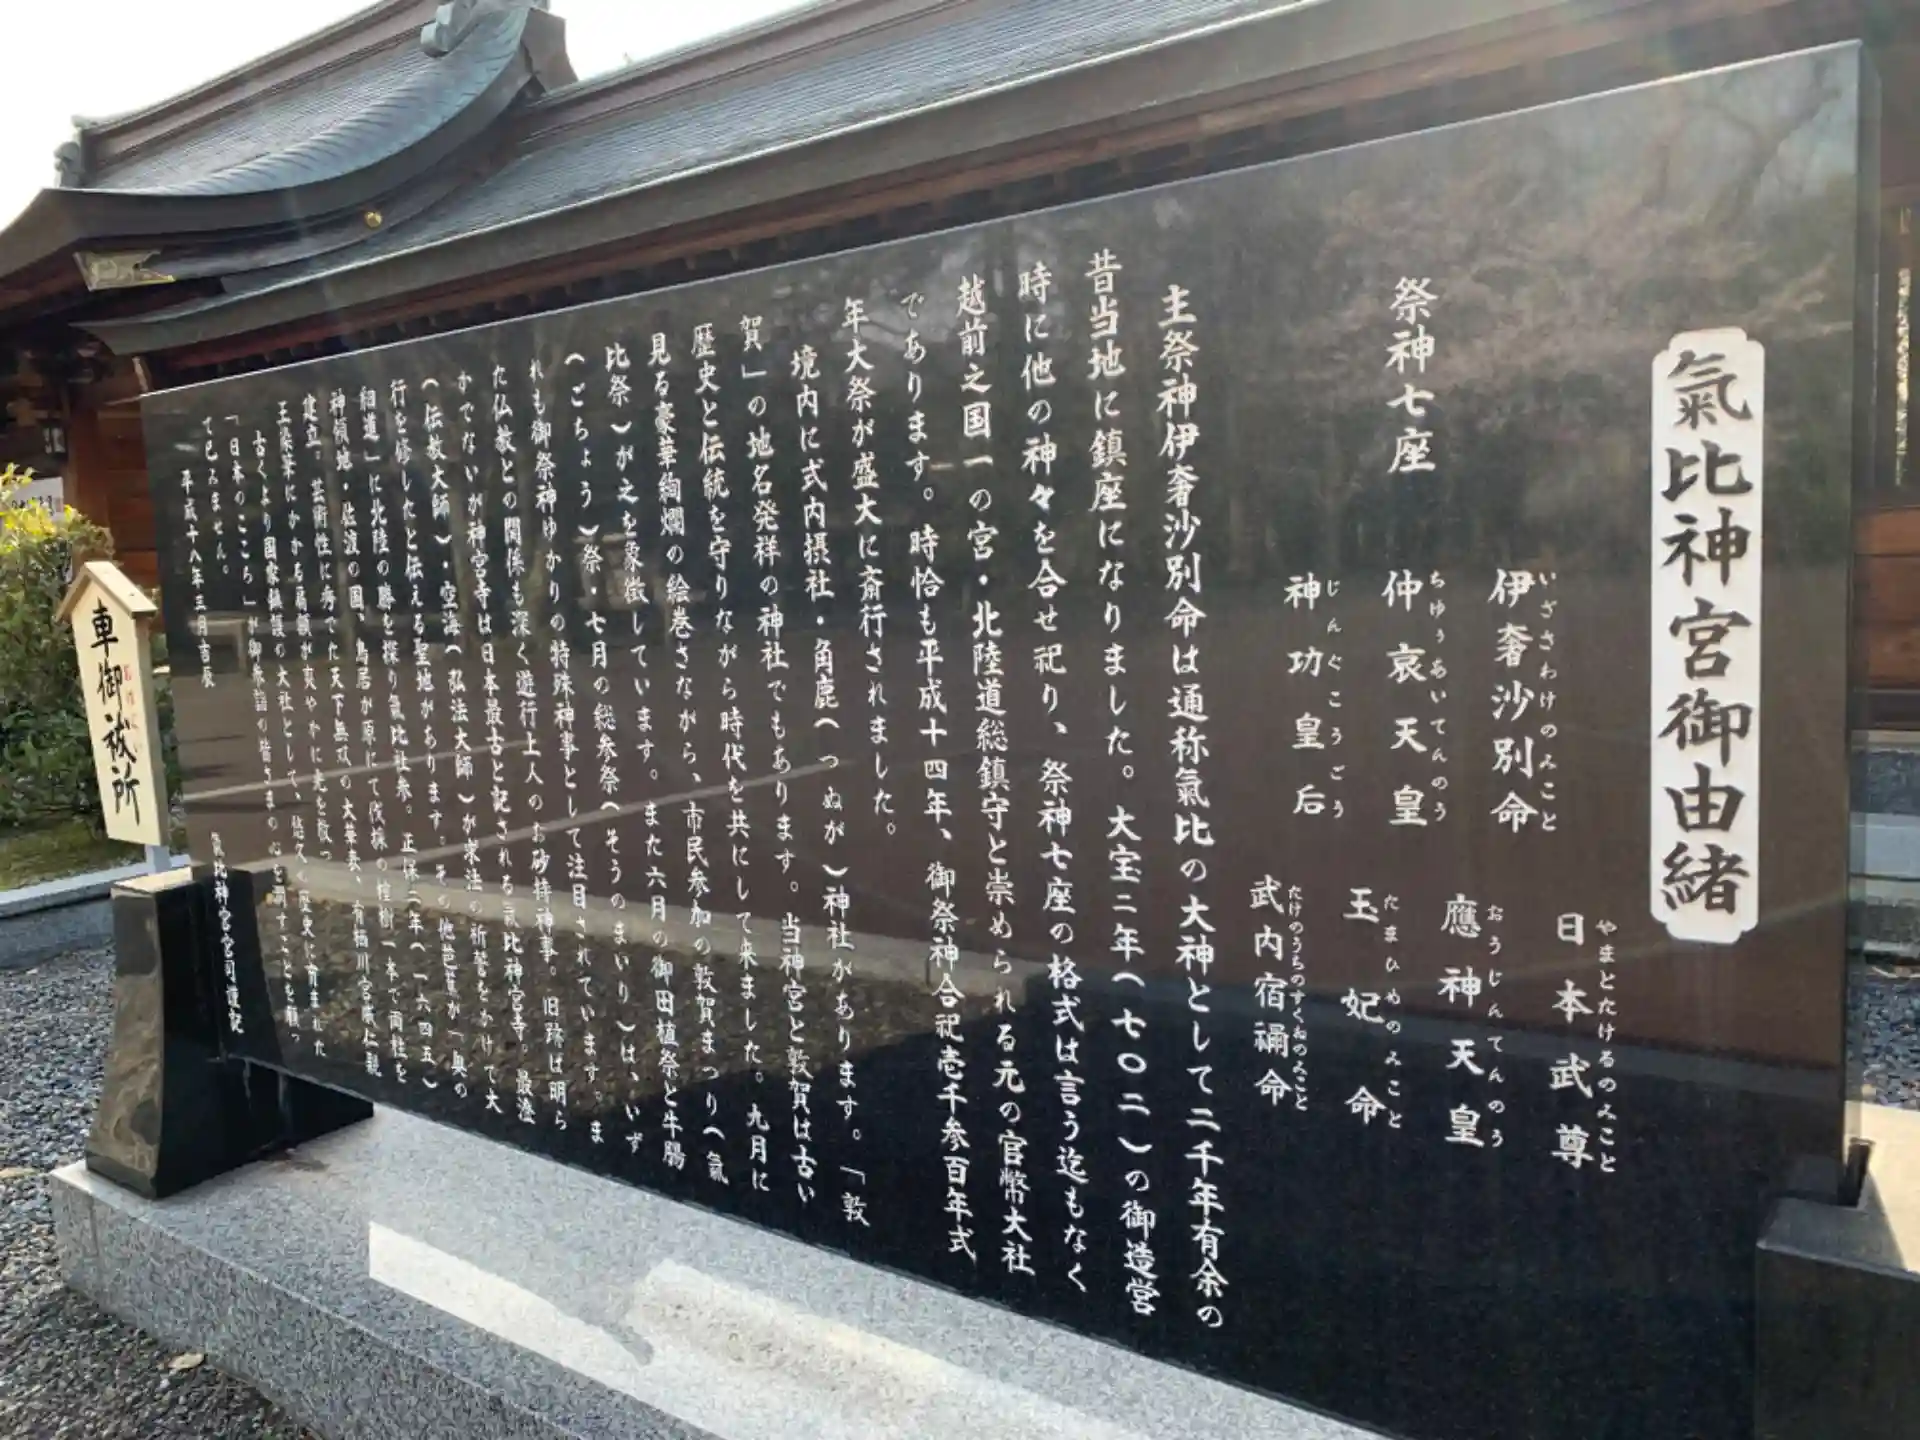 氣比神宮御由緒
祭神七座
伊奢沙別命
いざさわけのみこと
日本武尊
やまとたけるのみこと
仲哀天皇
ちゅうあいてんのう
應神天皇
おうじんてんのう
神功皇后
じんぐこうごう
玉妃命
たまひめのみこと
武内宿禰命
たけのうちのすくねのみこと
主祭神伊奢沙別命は通称氣比の大神として二千年有余の
昔当地に鎮座になりました。大宝二年(七〇二)の御造営
時に他の神々を合せ祀り、祭神七座の格式は言う迄もなく
越前之国一の宮・北陸道総鎮守と崇められる元の官幣大社
であります。時恰も平成十四年、御祭神合祀壱千参百年式
年大祭が盛大に斎行されました。
境内に式内摂社・角鹿(つぬが)神社があります。「敦
賀」の地名発祥の神社でもあります。当神宮と敦賀は古い
歴史と伝統を守りながら時代を共にして来ました。九月に
見る豪華絢爛の絵巻さながら、市民参加の敦賀まつり(氣
比祭)が之を象徴しています。また六月の御田植祭と牛腸
(ごちょう)祭・七月の総参祭(そうのまいり)は、いず
れも御祭神ゆかりの特殊神事として注目されています。ま
た仏教との関係も深く遊行上人のお砂持神事。旧跡は明ら
かでないが神宮寺は日本最古と記される氣比神宮寺。最澄
(伝教大師)・空海(弘法大師)が求法の祈誓をかけて大
行を修したと伝える聖地があります。その他芭蕉が「奥の
細道」に北陸の勝を探り氣比社参。正保二年(一六四五)
神領地・佐渡の国、鳥居が原にて伐採の榁樹一本で両柱を
建立。芸術性に秀でた天下無双の大華表、有栖川宮威仁親
王染筆にかかる扁額が爽やかに光を放つ
古くより国家鎮護の大社として、悠久の歴史に育まれた
「日本のこころ」が御参詣の皆さまの心を潤すことを願っ
て已みません。
平成十八年三月吉辰
氣比神宮宮司謹記
車御祓所